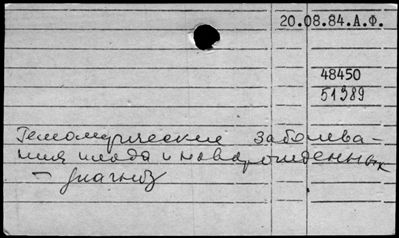 20.08.84.А.Ф.
48450
51389
Гемолитические заболева-
ния плода и новорожденных
- диагноз